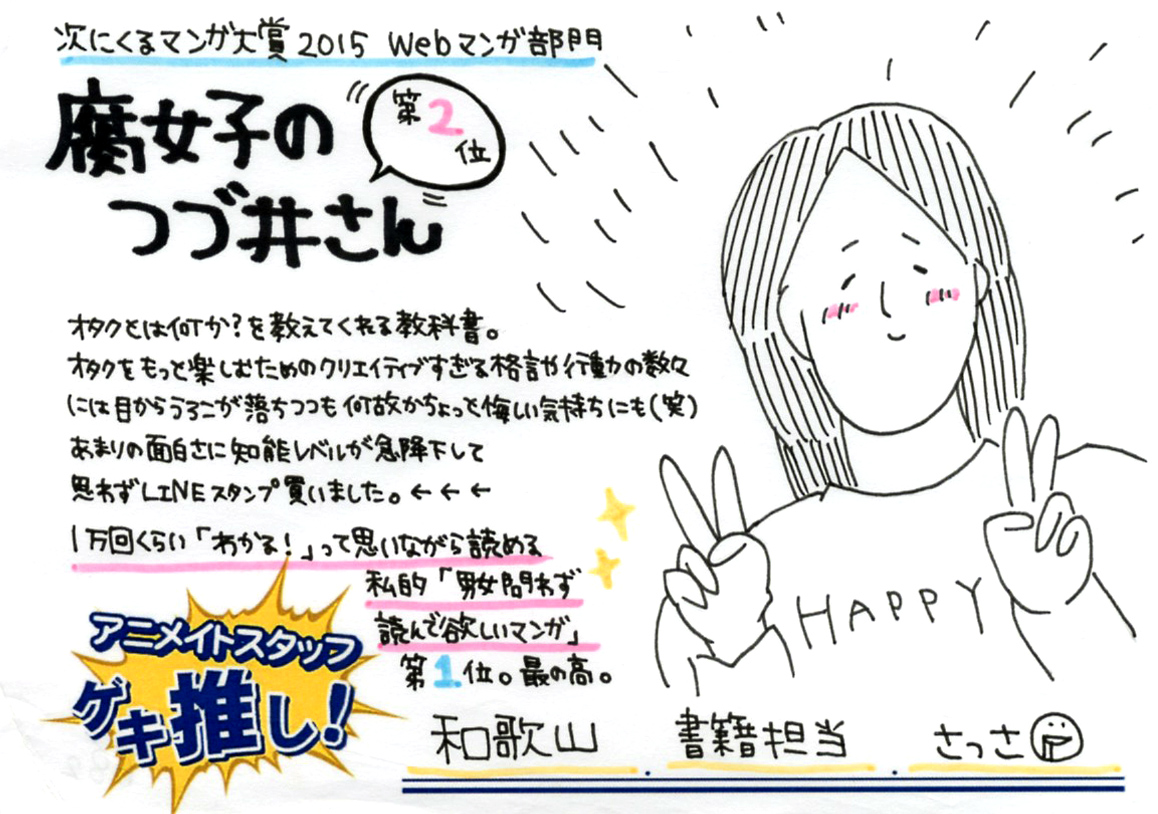 次にくるマンガ大賞2015 Webマンガ部門
腐女子の
つづ井さん
第2位
オタクとは何か?を教えてくれる教科書。
オタクをもっと楽しむためのクリエイティブすぎる格言や行動力の数々
には目からうろこが落ちつつも何故かちょっと悔しい気持ちにも(笑)
あまりの面白さに知能レベルが急降下して
思わずLINEスタンプ買いました。←←←
1万回くらい「わかる!」って思いながら読める
私的「男女問わず
読んで欲しいマンガ」
第1位。最の高。
HAPPY
アニメイトスタッフ
ゲキ推し!
和歌山.書籍担当.さっさ